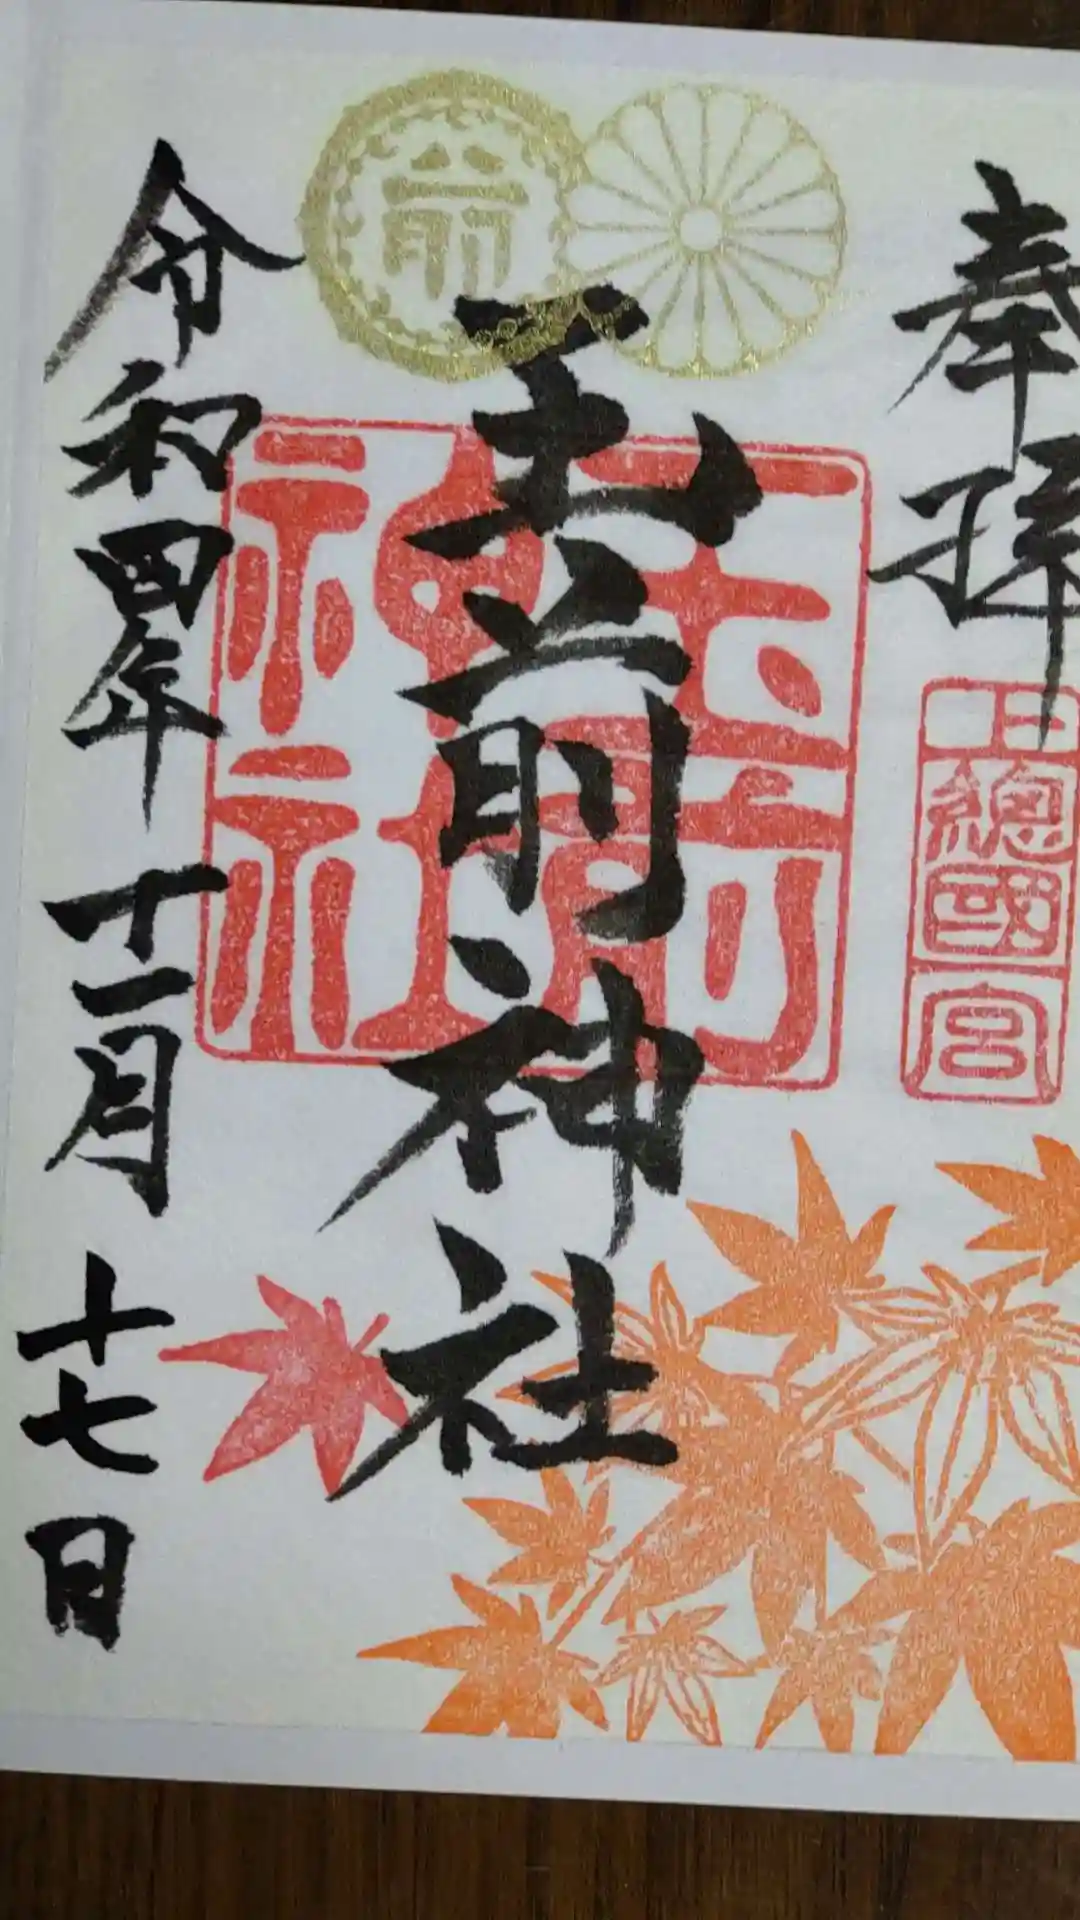 奉拝
上總國一宮
前
玉前神社
玉前
神社
令和四年十一月十七日